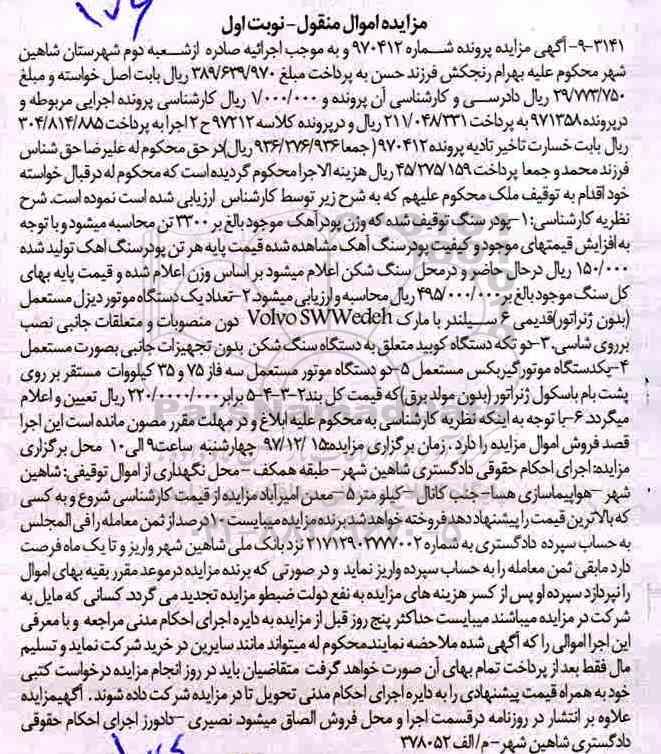 مزایده اموال منقول - نوبت اول
۹-۳۱۴۱-آگهی مزایده پرونده شماره ۹۷۰۴۱۲ و به موجب اجرائیه صادره ازشعبه دوم شهرستان شاهین
شهر محکوم علیه بهرام رنجکش فرزند حسن به پرداخت مبلغ ۳۸۹/۶۳۹/۹۷۰ ریال بابت اصل خواسته و مبلغ
۲۹/۷۷۳/۷۵۰ ریال دادرسی و کارشناسی آن پرونده و ۱/۰۰۰/۰۰۰ ریال کارشناسی پرونده اجرایی مربوطه و
درپرونده ۹۷۱۳۵۸ به پرداخت ۲۱۱/۰۴۸/۳۳۱ ریال و درپرونده کلاسه ۹۷۲۱۲ ح ۲ اجرا به پرداخت ۳۰۴/۸۱۴/۸۸۵
ریال بابت خسارت تاخیر تادیه پرونده ۹۷۰۴۱۲ (جمعا ۹۳۶/۲۷۶/۹۳۶ ریال)در حق محکوم له علیرضا حق شناس
فرزند محمد و جمعا پرداخت ۴۵/۲۷۵/۱۵۹ ریال هزینه الاجرا محکوم گردیده است که محکوم له درقبال خواسته
خود اقدام به توقیف ملک محکوم علیهم که به شرح زیر توسط کارشناس ارزیابی شده است نموده است. شرح
نظریه کارشناسی: ۱-پودر سنگ توقیف شده که وزن پودر آهک موجود بالغ بر ۳۳۰۰ تن محاسبه میشود و با توجه
به افزایش قیمتهای موجود و کیفیت پودر سنگ آهک مشاهده شده قیمت پایه هر تن پودر سنگ اهک تولید شده
۱۵۰/۰۰۰ ریال درحال حاضر و درمحل سنگ شکن اعلام میشود بر اساس وزن اعلام شده و قیمت پایه بهای
کل سنگ موجود بالغ بر ۴۹۵/۰۰۰/۰۰۰ ریال محاسبه و ارزیابی میشود ۲-تعداد یک دستگاه موتور دیزل مستعمل
(بدون ژنراتور)قدیمی ۶ سیلندر با مارک Volvo SWWedeh دون منصوبات و متعلقات جانبی نصب
برروی شاسی.۳-دو تکه دستگاه کوبید متعلق به دستگاه سنگ شکن بدون تجهیزات جانبی بصورت مستعمل
۴-یکدستگاه موتور گیربکس مستعمل ۵-دو دستگاه موتور مستعمل سه فاز ۷۵ و ۳۵ کیلووات مستقر بر روی
پشت بام باسکول ژنراتور (بدون مولد برق)که قیمت کل بند۲-۳-۴-۵ برابر ۲۲۰/۰۰۰۰/۰۰۰ ریال تعیین و اعلام
میگردد.۶-با توجه به اینکه نظریه کارشناسی به محکوم علیه ابلاغ و در مهلت مقرر مصون مانده است این اجرا
قصد فروش اموال مزایده را دارد . زمان برگزاری مزایده: ۹۷/۱۲/۱۵ چهارشنبه ساعت ۹ الی۱۰ محل برگزاری
مزایده: اجرای احکام حقوقی دادگستری شاهین شهر-طبقه همکف -محل نگهداری از اموال توقیفی: شاهین
شهر -هواپیماسازی هسا- جنب کانال -کیلو متر ۵ -معدن امیرآباد مزایده از قیمت کارشناسی شروع و به کسی
که بالاترین قیمت را پیشنهاد دهد فروخته خواهد شد برنده مزایده میبایست ۱۰درصد از ثمن معامله را فی المجلس
به حساب سپرده دادگستری به شماره ۲۱۷۱۲۹۰۲۷۷۷۰۰۲ نزد بانک ملی شاهین شهر واریز و تا یک ماه فرصت
دارد مابقی ثمن معامله را به حساب سپرده واریز نماید و در صورتی که برنده مزایده درموعد مقرر بقیه بهای اموال
را نپردازد سپرده او پس از کسر هزینه های مزایده به نفع دولت ضبطو مزایده تجدید می گردد. کسانی که مایل به
شرکت در مزایده میباشند میبایست حداکثر پنج روز قبل از مزایده به دایره اجرای احکام مدنی مراجعه و با معرفی
این اجرا اموالی را که آگهی شده ملاحضه نمایند.محکوم له میتواند مانند سایرین در خرید شرکت نماید و تسلیم
مال فقط بعد از پرداخت تمام بهای آن صورت خواهد گرفت متقاضیان باید در روز انجام مزایده درخواست کتبی
خود به همراه قیمت پیشنهادی را به دایره اجرای احکام مدنی تحویل تا در مزایده شرکت داده شوند . آگهیمزایده
علاوه بر انتشار در روزنامه درقسمت اجرا و محل فروش الصاق میشود. نصیری -دادورز اجرای احکام حقوقی
دادگستری شاهین شهر-م/الف ۳۷۸۰۵۲